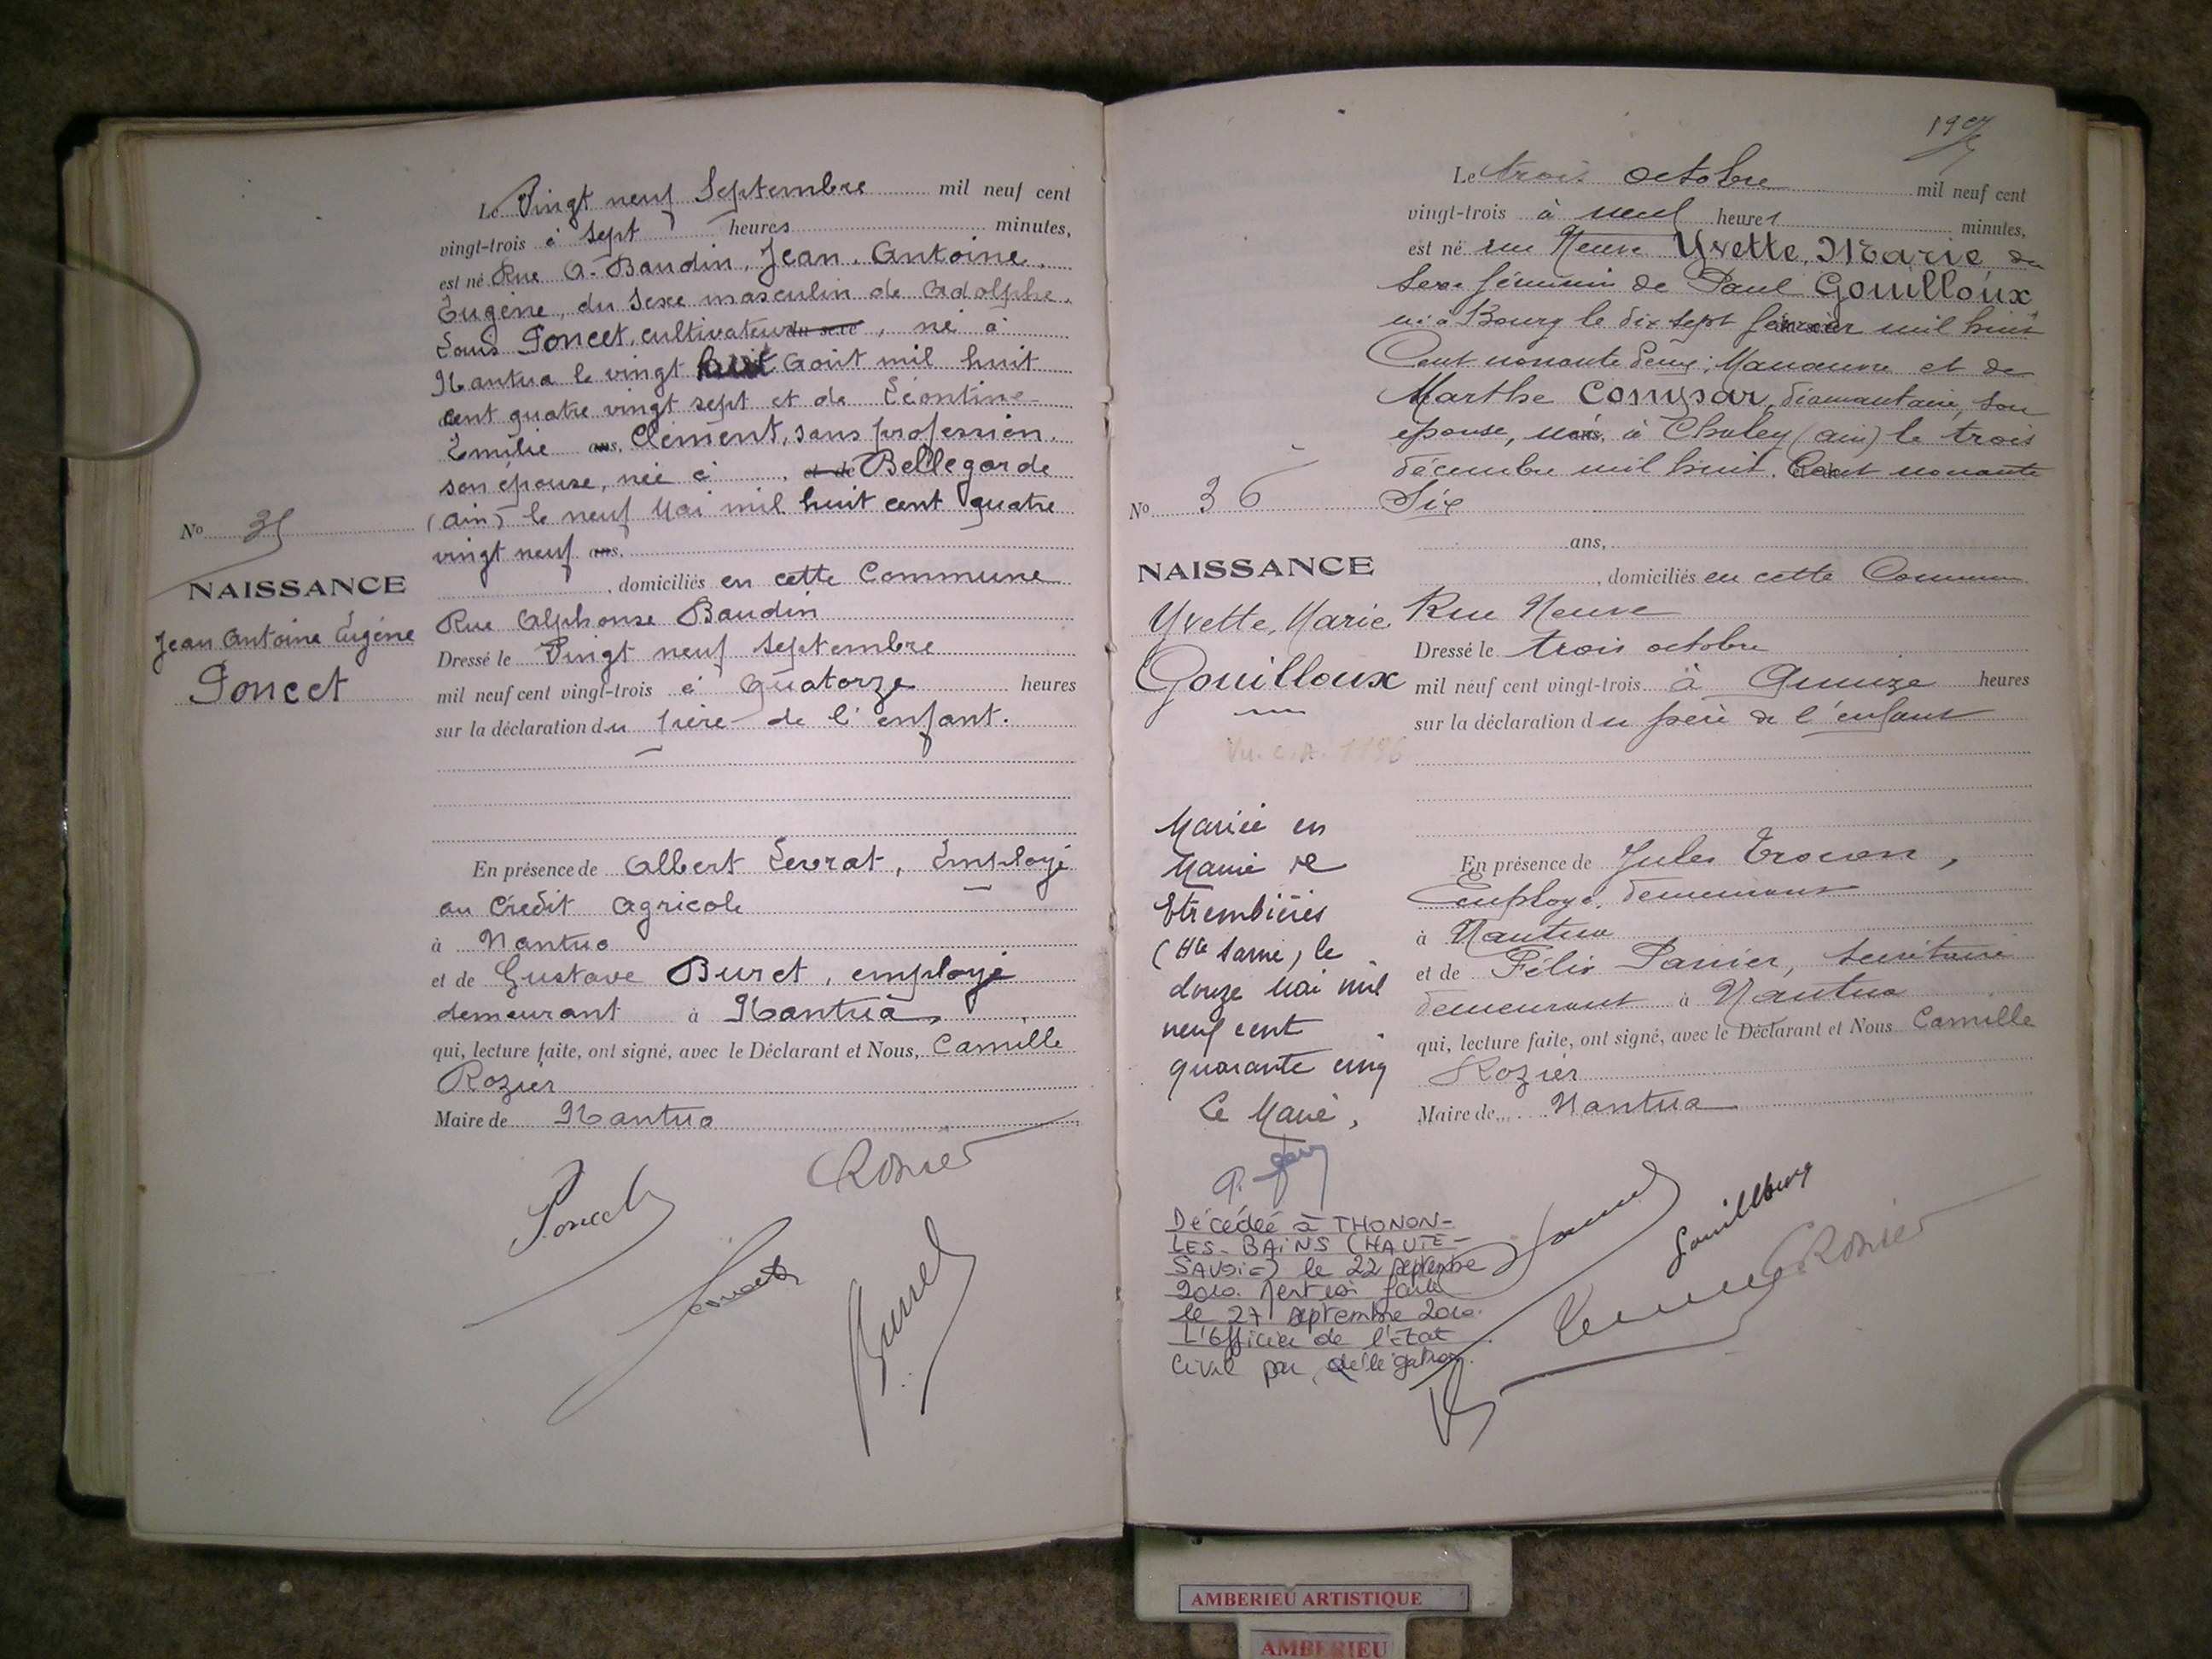 Le Vingt neuf Septembre mil neuf cent
vingt-trois à sept heures minutes,
est né Rue A. Baudin, Jean. Antoine.
Eugène, du sexe masculin de Adolphe.
Louis Poncet, cultivateur du sexe, né à
Nantua le vingt huit Août mil huit
cent quatre vingt sept et de Léontine
Emilie ans, Clément, sans profession.
son épouse, née à , et de Bellegarde
(Ain) le neuf Mai mil huit cent quatre
vingt neuf ans.
, domiciliés en cette Commune
Rue Alphonse Baudin
Dressé le Vingt neuf septembre
mil neuf cent vingt-trois à Quatorze heures
sur la déclaration du père de l'enfant.
En présence de Albert Levrat, Employé
au Crédit Agricole
à Nantua
et de Gustave Buret, employé
demeurant à Nantua,
qui, lecture faite, ont signé, avec le Déclarant et Nous, Camille
Rozier
Maire de Nantua
No 35
NAISSANCE
Jean Antoine Eugène
Poncet
Poncet
Rozier
Le trois octobre mil neuf cent
vingt-trois à neuf heures minutes,
est né rue Neuve Yvette, Marie du
sexe féminin de Paul Gouilloux
né à Bourg le dix sept février mil huit
Cent nonante deux; Manœuvre et de
Marthe diamantaire, son
épouse, née, à Chaley (ain) le trois
décembre mil huit. Cent nonante
Six
ans,
, domiciliés en cette Commune
Rue Neuve
Dressé le trois octobre
mil neuf cent vingt-trois à Quinze heures
sur la déclaration du père de l'enfant
En présence de Jules
Employé, demeurant
à Nantua
et de Félix Panier, secrétaire
demeurant à Nantua
qui, lecture faite, ont signé, avec le Déclarant et Nous Camille
Rozier
Maire de Nantua
No 36
NAISSANCE
Yvette, Marie
Gouilloux
Mariée en
Mairie de
Etrembières
(Hte Savoie), le
douze Mai mil
neuf cent
quarante cinq
Le Maire,
Décédée à THONON-
LES-BAINS (HAUTE-
SAVOIE) le 22 septembre
2010. Mention faite
le 27 septembre 2010.
L'Officier de l'Etat
Civil par délégation.
Gouilloux
Rozier
AMBERIEU ARTISTIQUE
AMBERIEU